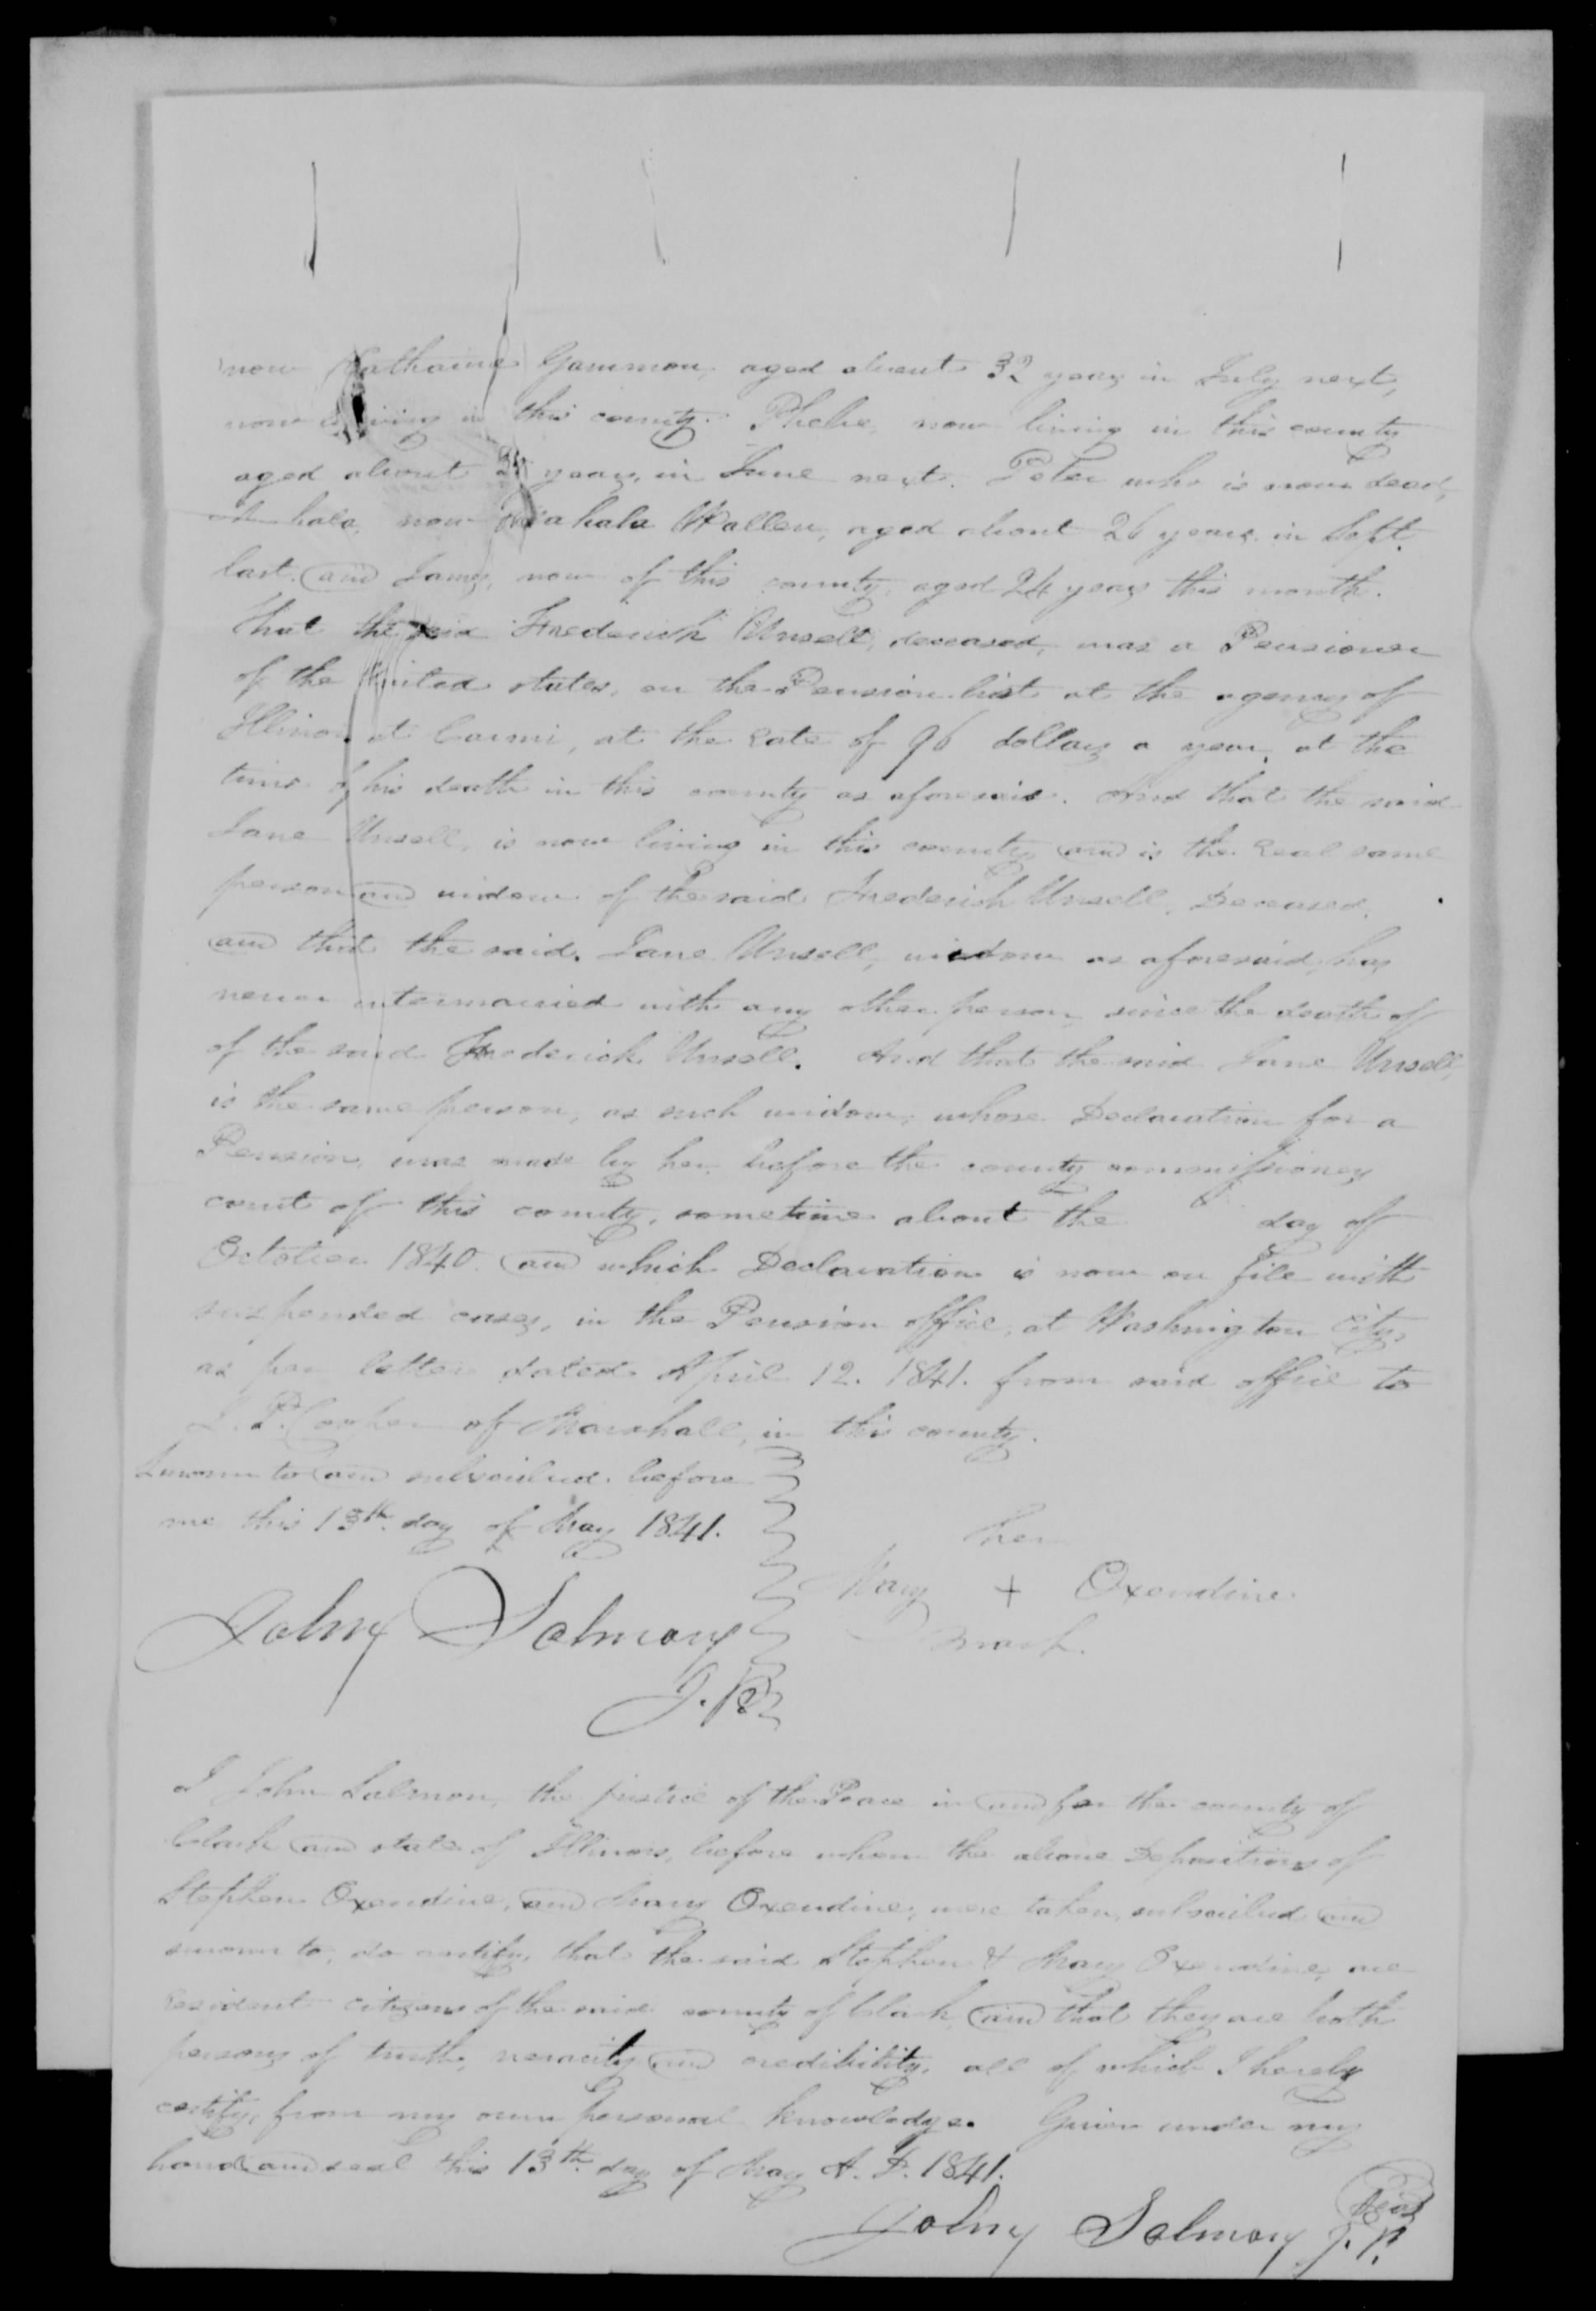 now Catharine Gammon, aged about 32 years in July next,
now living in this county. Phebe, now living in this county
aged about years, in June next. Peter who is now dead,
hala, now Mahala Wallen, aged about 26 years in Sept.
last. and James, now of this county, aged 24 years this month.
That the said Frederick Unsell, deceased, was a Pensioner
of the United states, on the Pension list at the agency of
Illinois at Carmi, at the Rate of 96 dollars a year, at the
time of his death in this county as aforesaid. And that the said
Jane Unsell, is now living in this county, and is the Real same
person and widow of the said Frederick Unsell, Deceased,
and that the said Jane Unsell, widow as aforesaid, has
never intermarried with any other person, since the death of
of the said Frederick Unsell. And that the said Jane Unsell,
is the same person, as such widow, whose Declaration for a
Pension, was made by her before the county commissioners
court of this county, sometime about the day of
October 1840. and which Declaration is now on file with
suspended cases, in the Pension office, at Washington City,
as per letter dated April 12. 1841. from said office to
of Marshall, in this county.
Sworn to and subscribed before
me this 13th. day of May 1841.
her
Mary + Oxendine
mark.
John Salmon
J. P.
I John Salmon, the justice of the Peace in and for the county of
Clark and state of Illinois, before whom the above Depositions of
Stephen Oxendine, and Mary Oxendine, were taken, subscribed and
sworn to, do certify, that the said Stephen & Mary Oxendine, are
Resident citizens of the said county of Clark, and that they are both
persons of truth, veracity and credibility, all of which I hereby
certify, from my own personal knowledge. Given under my
hand and seal this 13th. day of May A. D. 1841.
Seal
John Salmon J. P.